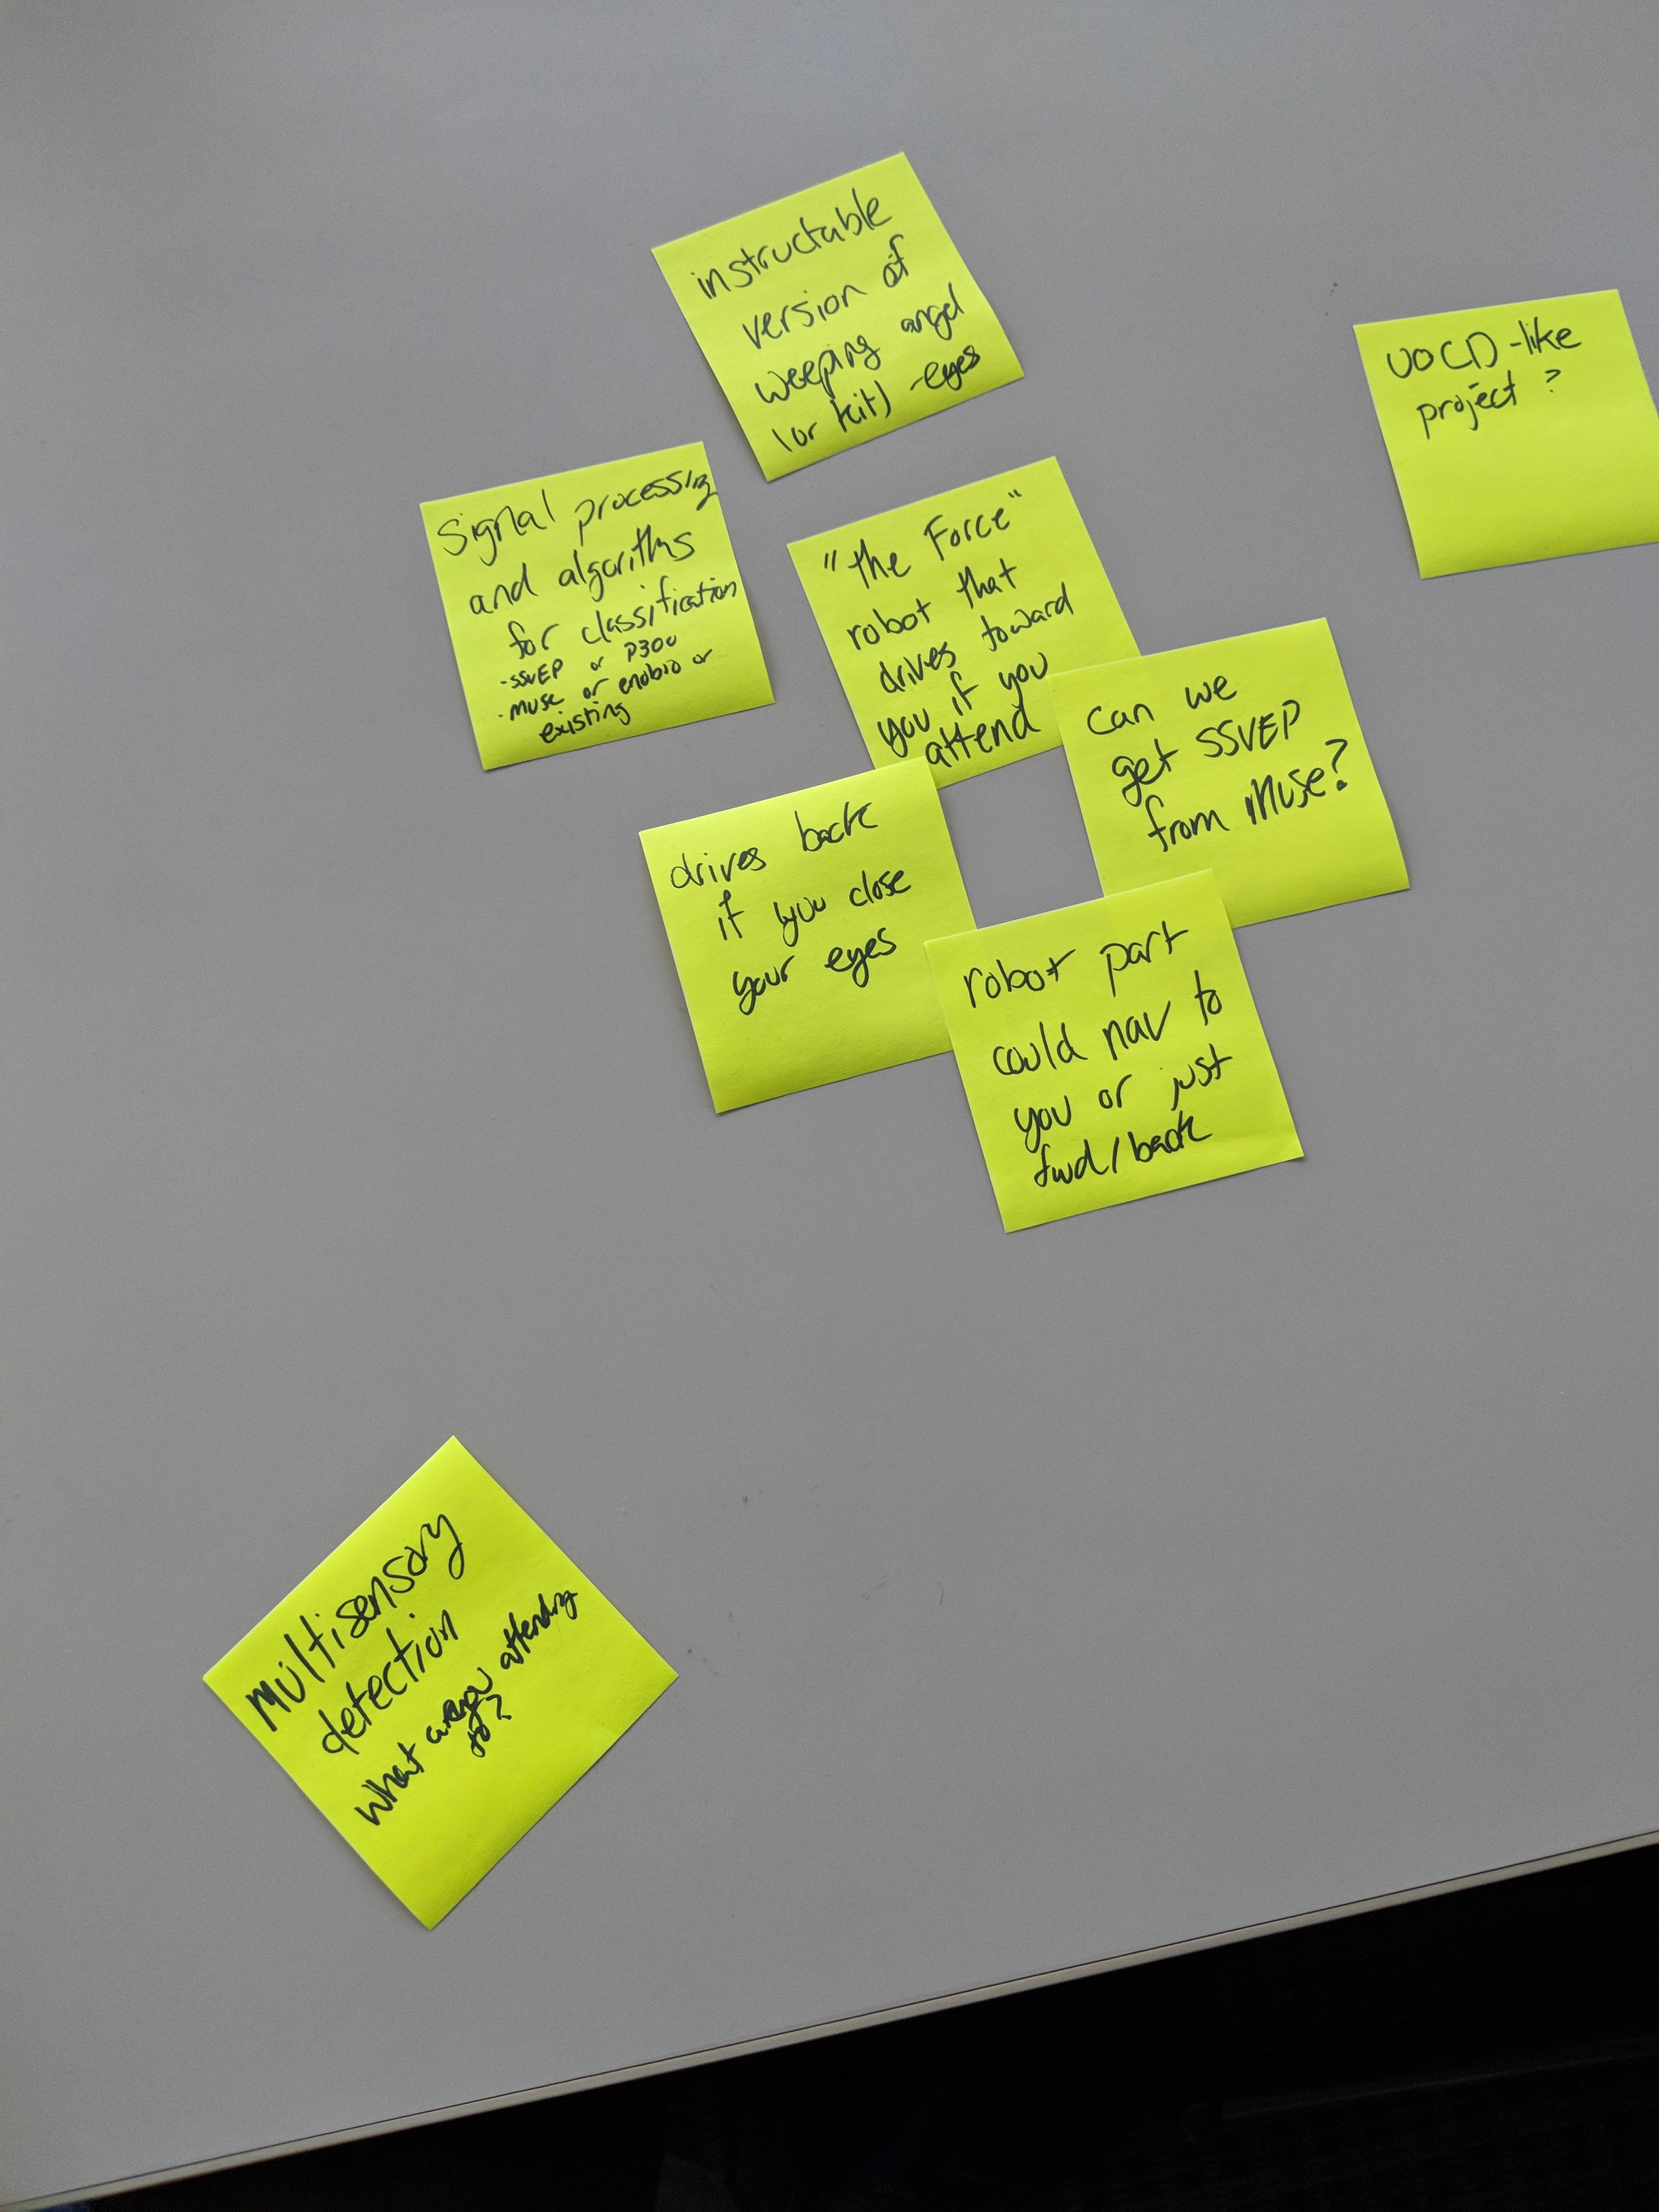 instructable
version of
weeping angel
(or kit) -eyes
UOCD-like
project?
Signal processing
and algorithms
for classification
-SSVEP or P300
-muse or enobio or
existing
"the Force"
robot that
drives toward
you if you
attend
can we
get SSVEP
from Muse?
drives back
if you close
your eyes
robot part
could nav to
you or just
fwd/back
multisensory
detection
what are you attending
to?